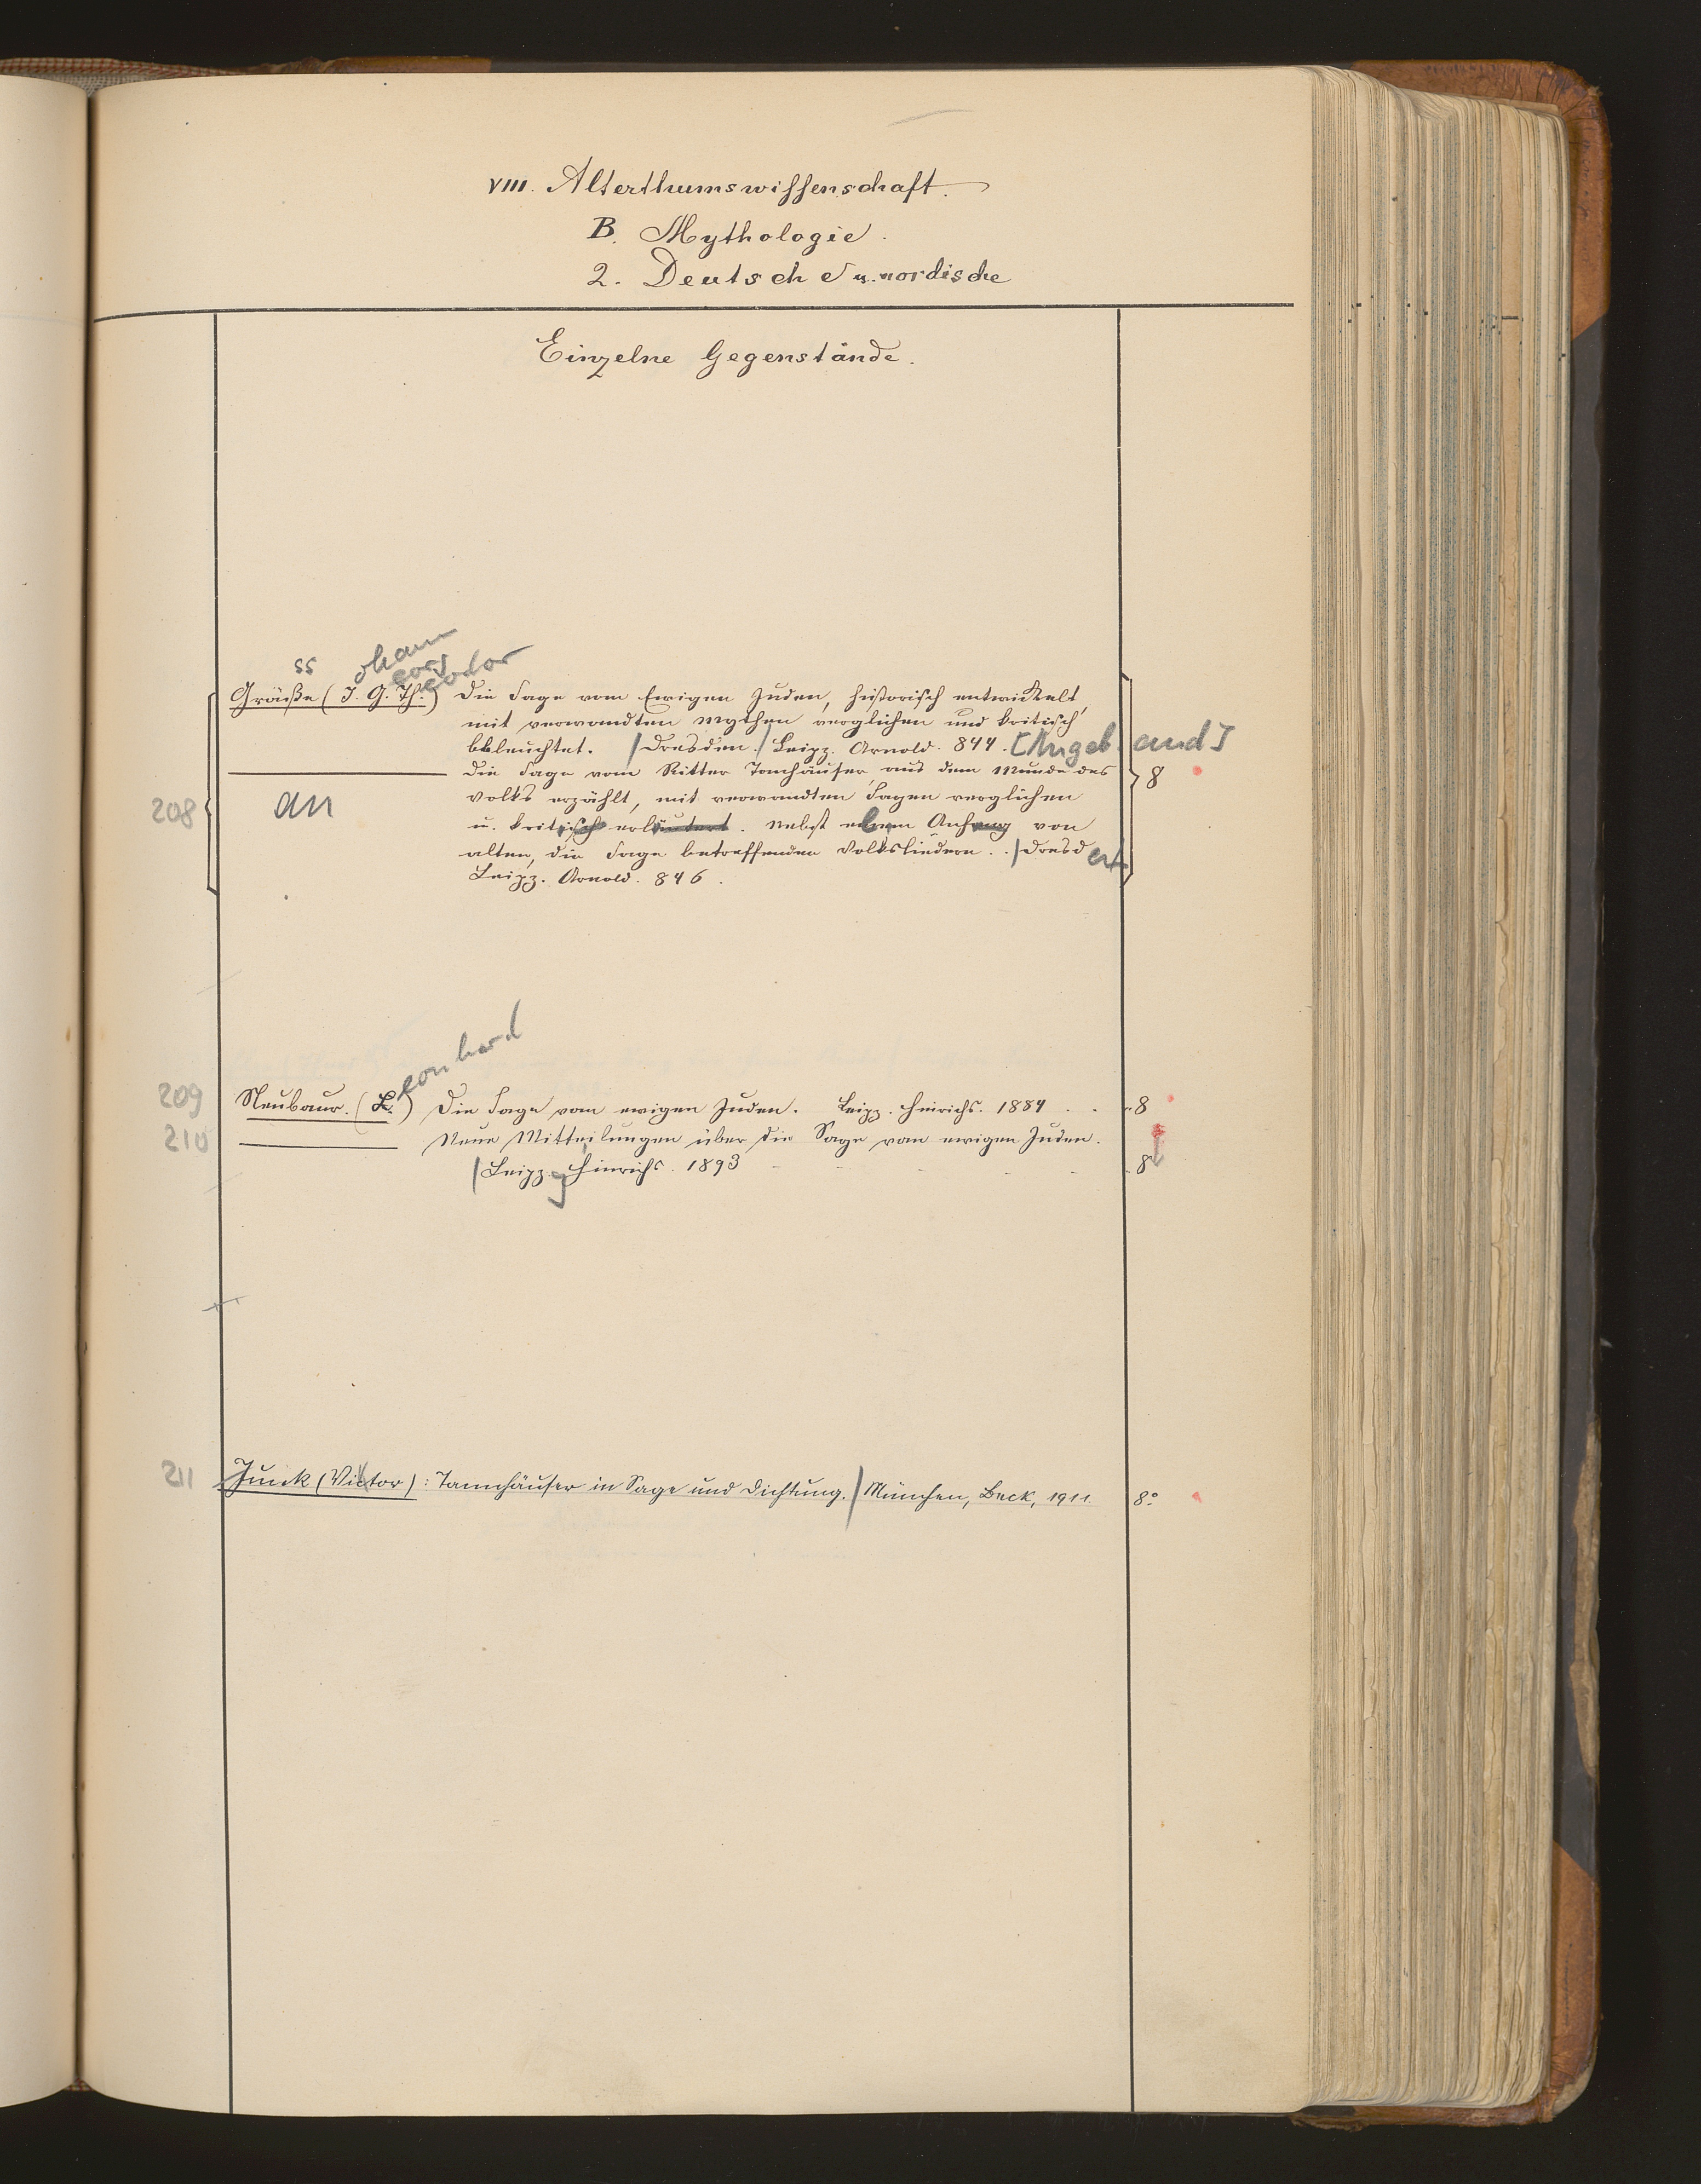 VIII. Alterthumswissenschaft.
B. Mythologie.
2. Deutsche u. nordische
Einzelne Gegenstände.
ss ohann eorg eodor
Gräße (J. G. Th.) Die Sage vom Ewigen Juden, historisch entwickelt,
mit verwandten Mythen verglichen und kritisch
beleuchtet. / Dresden. / Leipz. Arnold. 844. [Angeb. and]
208 Die Sage vom Ritter Tanhäuser, aus dem Munde des 8
an Volks erzählt, mit verwandten Sagen verglichen
u. kritisch erläutert. Nebst einem Anhang von
alten, die Sage betreffenden Volksliedern. . / Dresden
Leipz. Arnold. 846.
eonhard
209 Neubaur. (L.) Die Sage vom ewigen Juden. Leipz. Hinrichs. 1884 . . 8
210 Neue Mitteilungen über die Sage vom ewigen Juden.
/ Leipzg Hinrichs. 1893 8
211 Junk (Victor): Tannhäuser in Sage und Dichtung. / München, Beck, 1911. 8°